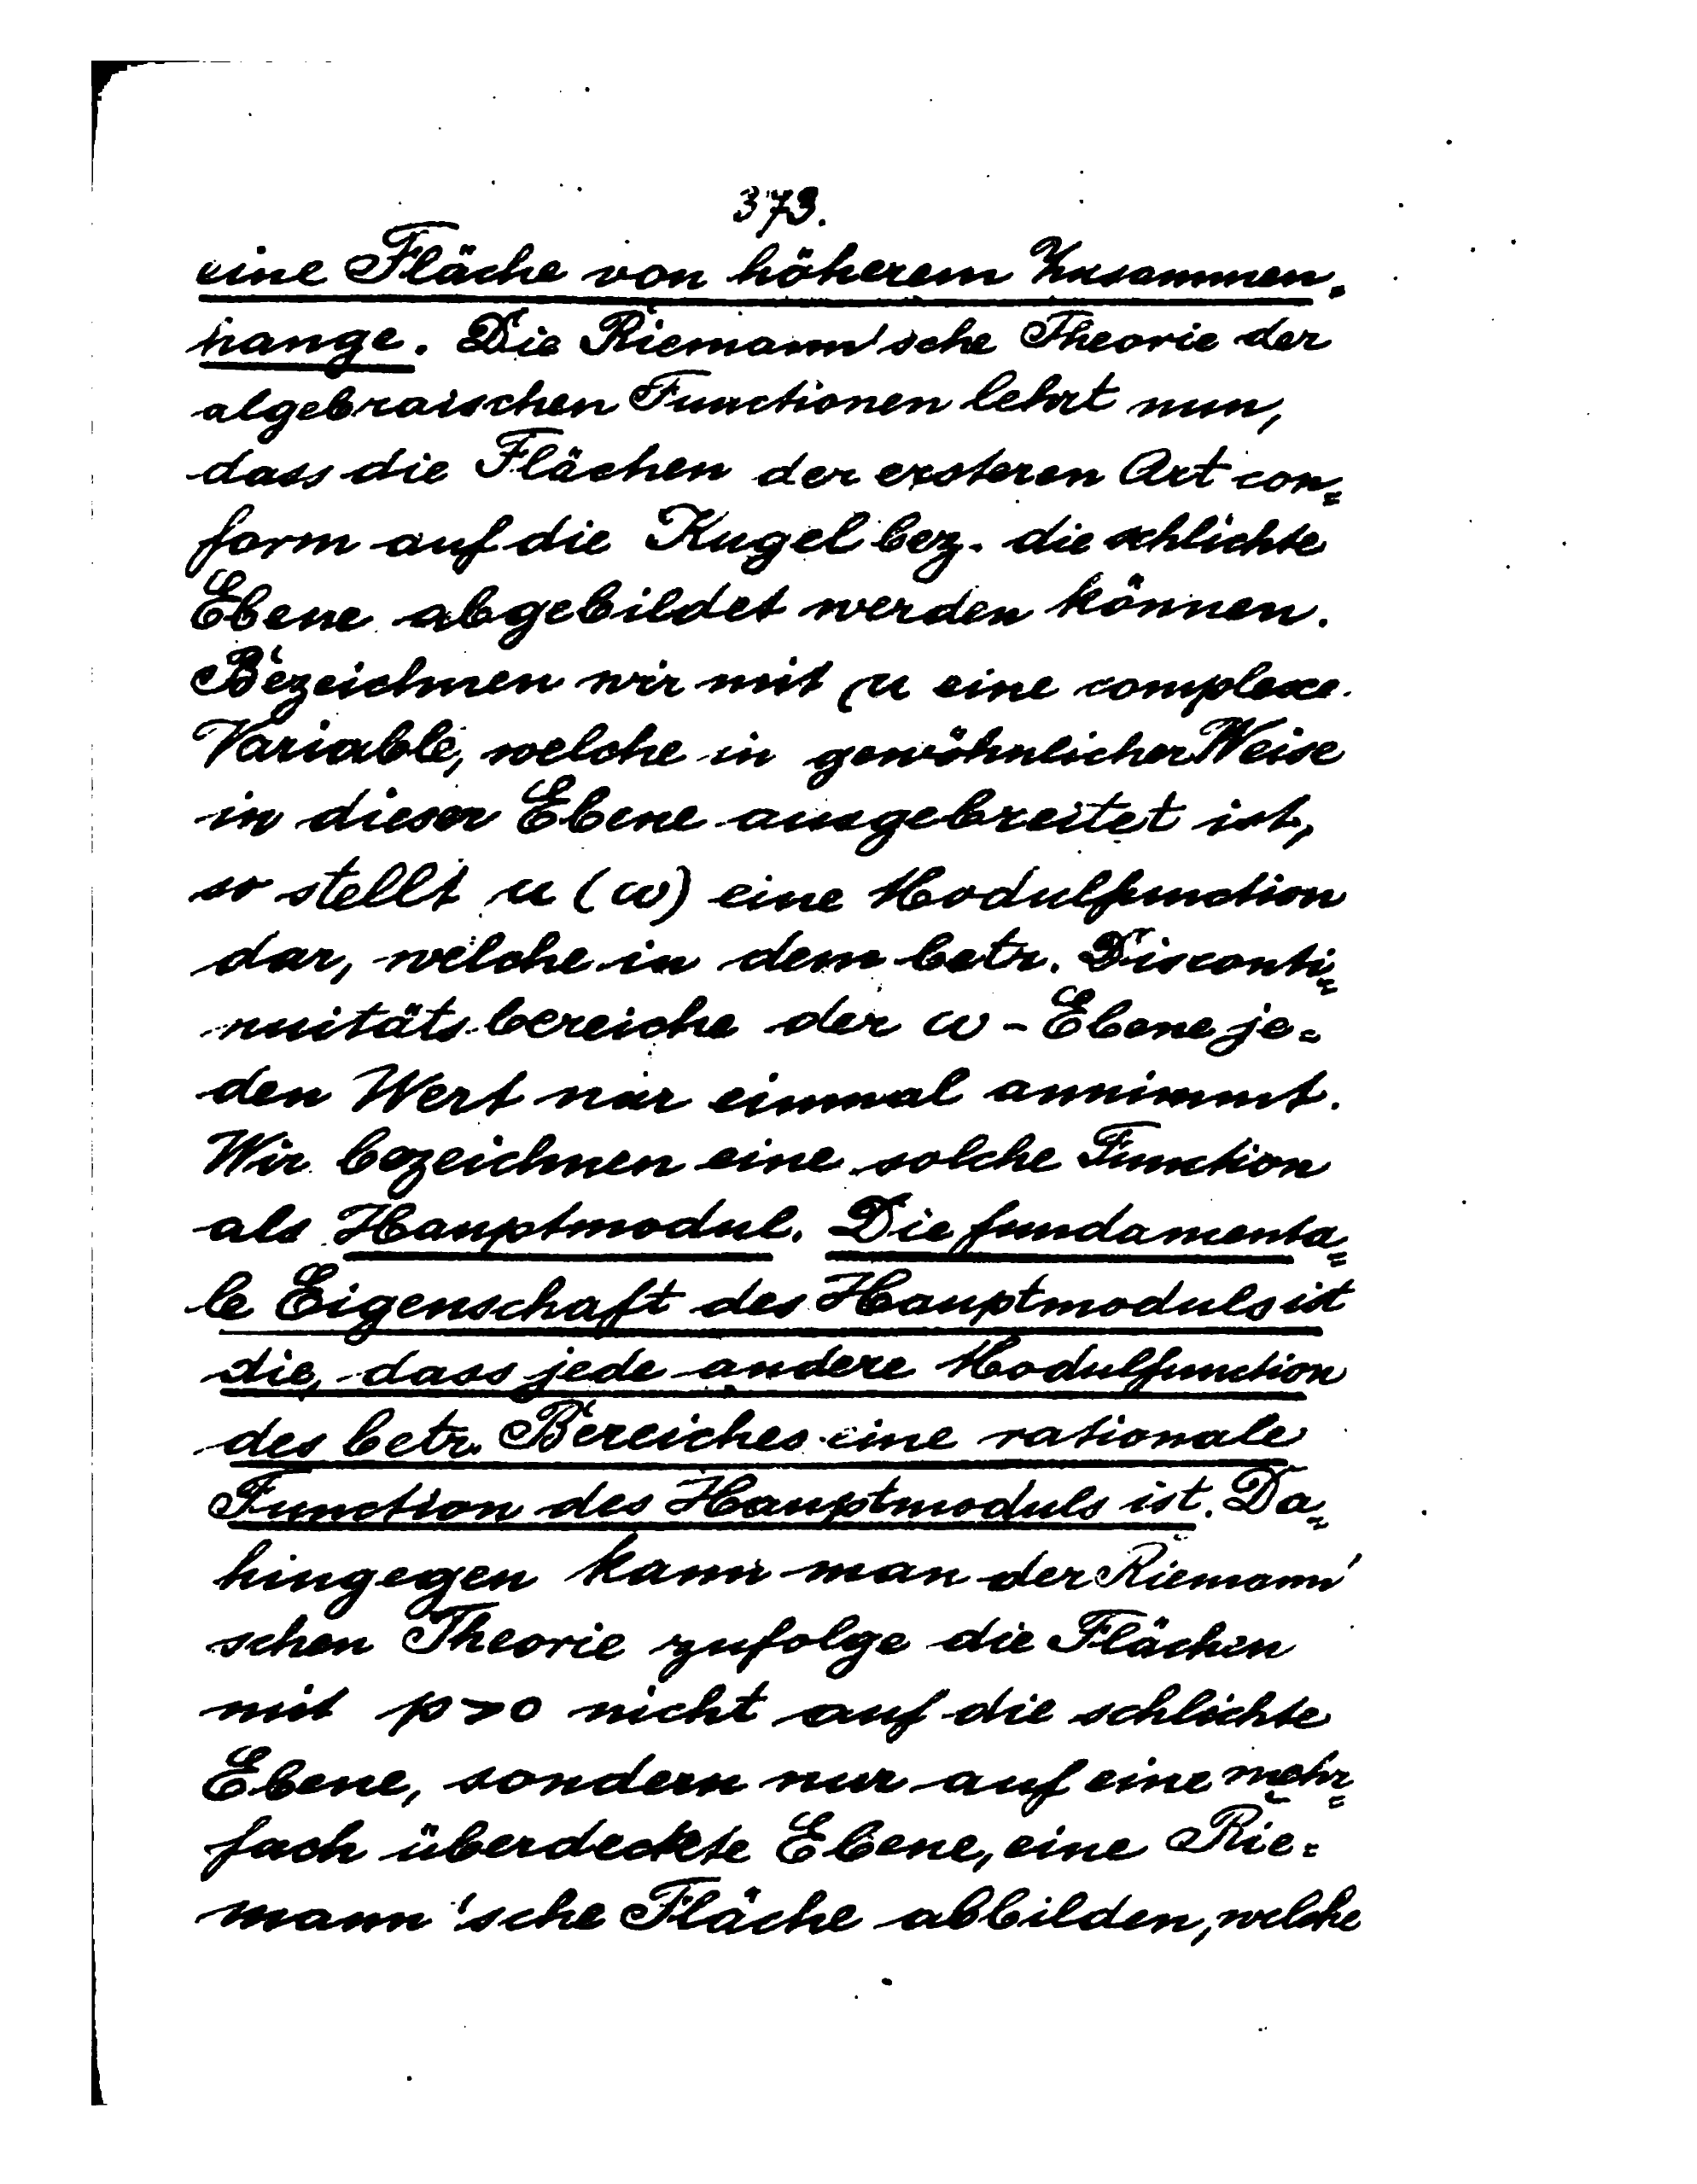 373.
eine Fläche von höherem Zusammen-
hange. Die Riemann'sche Theorie der
algebraischen Functionen lehrt nun,
dass die Flächen der ersteren Art con=
form auf die Kugel bez. die schlichte
Ebene abgebildet werden können.
Bezeichnen wir mit u eine complexe
Variable, welche in gewöhnlicher Weise
in dieser Ebene ausgebreitet ist,
so stellt u (ω) eine Modulfunction
dar, welche in dem betr. Disconti=
nuitätsbereiche der ω-Ebene je=
den Wert nur einmal annimmt.
Wir bezeichnen eine solche Function
als Hauptmodul. Die fundamenta=
le Eigenschaft des Hauptmoduls ist
die, dass jede andere Modulfunction
des betr. Bereiches eine rationale
Function des Hauptmoduls ist. Da=
hingegen kann man der Riemann'
schen Theorie zufolge die Flächen
mit p>0 nicht auf die schlichte
Ebene, sondern nur auf eine mehr=
fach überdeckte Ebene, eine Rie=
mann'sche Fläche abbilden, welche